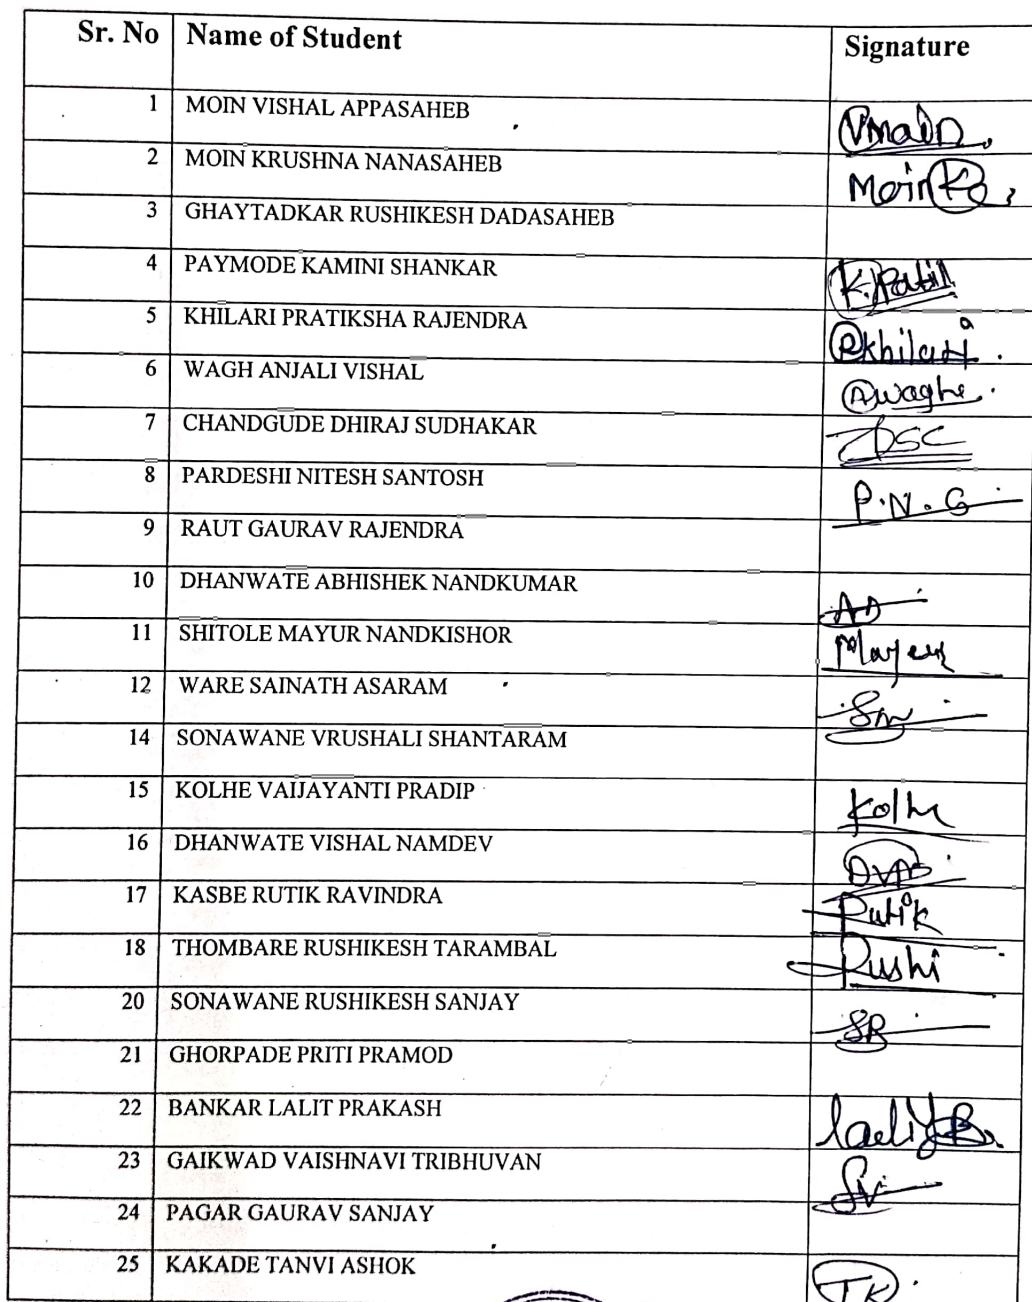 Sr. No Name of Student Signature
1 MOIN VISHAL APPASAHEB Vmoin.
2 MOIN KRUSHNA NANASAHEB Moin
3 GHAYTADKAR RUSHIKESH DADASAHEB
4 PAYMODE KAMINI SHANKAR K.Patil
5 KHILARI PRATIKSHA RAJENDRA Pkhilari.
6 WAGH ANJALI VISHAL Awaghe.
7 CHANDGUDE DHIRAJ SUDHAKAR DSC
8 PARDESHI NITESH SANTOSH P.N.S
9 RAUT GAURAV RAJENDRA
10 DHANWATE ABHISHEK NANDKUMAR AD
11 SHITOLE MAYUR NANDKISHOR Mayur
12 WARE SAINATH ASARAM
14 SONAWANE VRUSHALI SHANTARAM
15 KOLHE VAIJAYANTI PRADIP Kolhe
16 DHANWATE VISHAL NAMDEV DVN
17 KASBE RUTIK RAVINDRA Rutik
18 THOMBARE RUSHIKESH TARAMBAL Rushi
20 SONAWANE RUSHIKESH SANJAY SR
21 GHORPADE PRITI PRAMOD
22 BANKAR LALIT PRAKASH
23 GAIKWAD VAISHNAVI TRIBHUVAN
24 PAGAR GAURAV SANJAY
25 KAKADE TANVI ASHOK TK